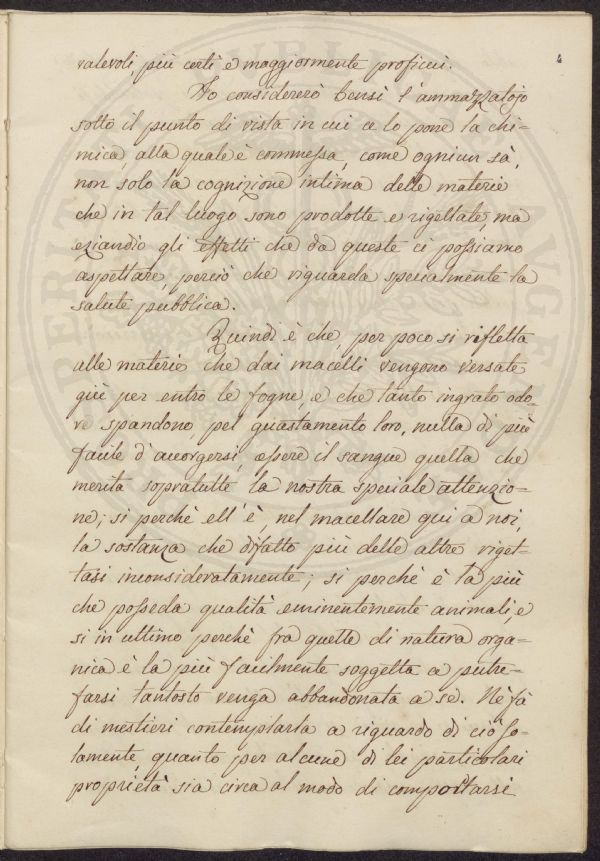 4
valevoli, più certi e maggiormente proficui.
Io considererò bensì l'ammazzatojo
sotto il punto di vista in cui ce lo pone la chi=
mica, alla quale è commessa, come ognun sà,
non solo la cognizione intima delle materie
che in tal luogo sono prodotte e rigettate, ma
eziandio gli effetti che da queste ci possiamo
aspettare, perciò che riguarda specialmente la
salute pubblica.
Quindi è che, per poco si rifletta
alle materie che dai macelli vengono versate
giù per entro le fogne, e che tanto ingrato odo=
re spandono, pel guastamento loro, nulla di più
facile d'accorgersi, essere il sangue quella che
merita sopratutte la nostra speciale attenzio=
ne; si perchè ell'è, nel macellare qui a noi,
la sostanza che difatto più delle altre riget=
tasi inconsideratamente; si perchè è la più
che posseda qualità eminentemente animali, e
si in ultimo perchè fra quelle di natura orga=
nica è la più facilmente soggetta a putre=
farsi tantosto venga abbandonata a se. Nè fà
di mestieri contemplarla a riguardo di ciò so=
lamente, quanto per alcune di lei particolari
proprietà sia circa al modo di comportarsi